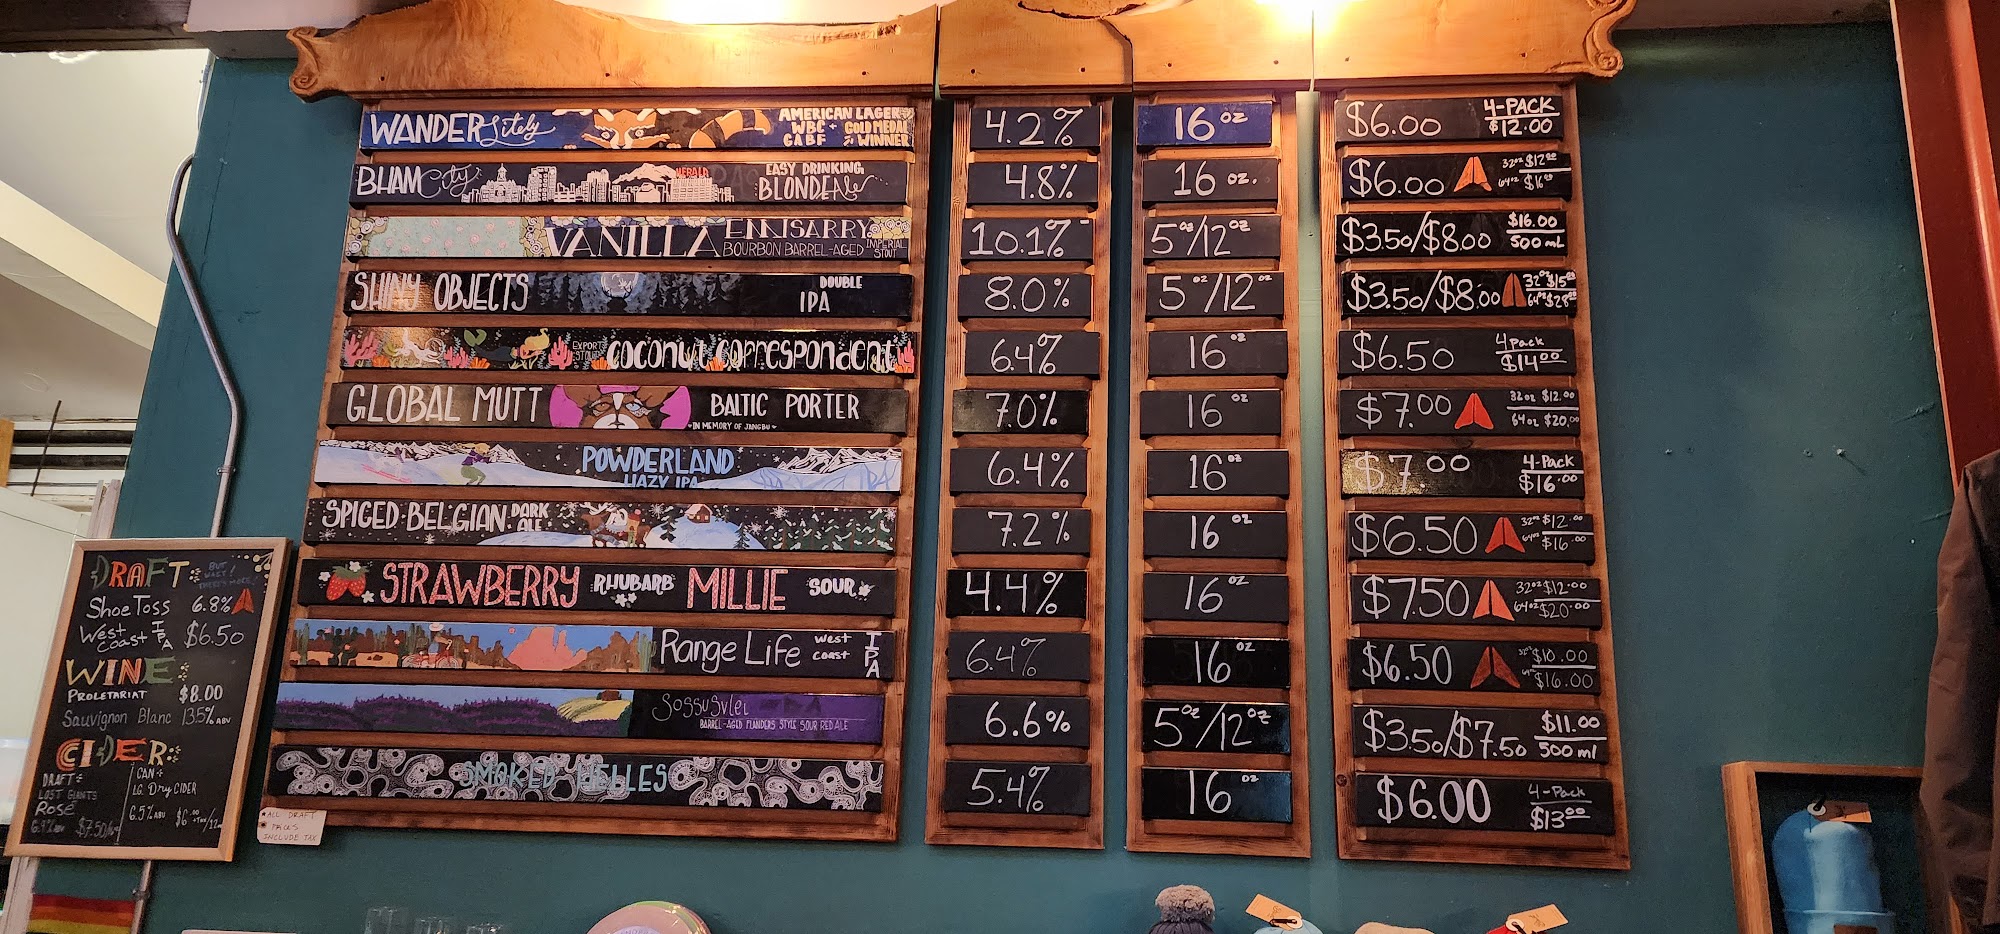 WANDER Litely AMERICAN LAGER WBC + GABF GOLD MEDAL WINNER 4.2% 16 oz $6.00 4-PACK $12.00
BHAM City HERALD EASY DRINKING BLONDE Ale 4.8% 16 oz. $6.00 32oz $12.00 64oz $16.00
VANILLA ENNISARRY BOURBON BARREL-AGED IMPERIAL STOUT 10.1% 5oz/12oz $3.50/$8.00 $16.00 500 mL
SHINY OBJECTS DOUBLE IPA 8.0% 5oz/12oz $3.50/$8.00 32oz $15.00 64oz $28.00
EXPORT STOUT coconut correspondent 6.4% 16 oz $6.50 4pack $14.00
GLOBAL MUTT BALTIC PORTER IN MEMORY OF JANGBU 7.0% 16 oz $7.00 32oz $12.00 64oz $20.00
POWDERLAND HAZY IPA 6.4% 16 oz $7.00 4-Pack $16.00
SPICED BELGIAN DARK ALE 7.2% 16 oz $6.50 32oz $12.00 64oz $16.00
STRAWBERRY RHUBARB MILLIE SOUR 4.4% 16 oz $7.50 32oz $12.00 64oz $20.00
Range Life West Coast IPA 6.4% 16 oz $6.50 32oz $10.00 64oz $16.00
BARREL-AGED FLANDERS STYLE SOUR RED ALE 6.6% 5oz/12oz $3.50/$7.50 $11.00 500 ml
SMOKED HELLES 5.4% 16 oz $6.00 4-Pack $13.00
DRAFT: BUT WAIT! THERE'S MORE!
Shoe Toss 6.8%
West Coast IPA $6.50
WINE:
PROLETARIAT $8.00
Sauvignon Blanc 13.5% ABV
CIDER:
DRAFT:
LOST GIANTS
Rosé
CAN:
Dry CIDER
6.5% ABV
ALL DRAFT
INCLUDE TAX